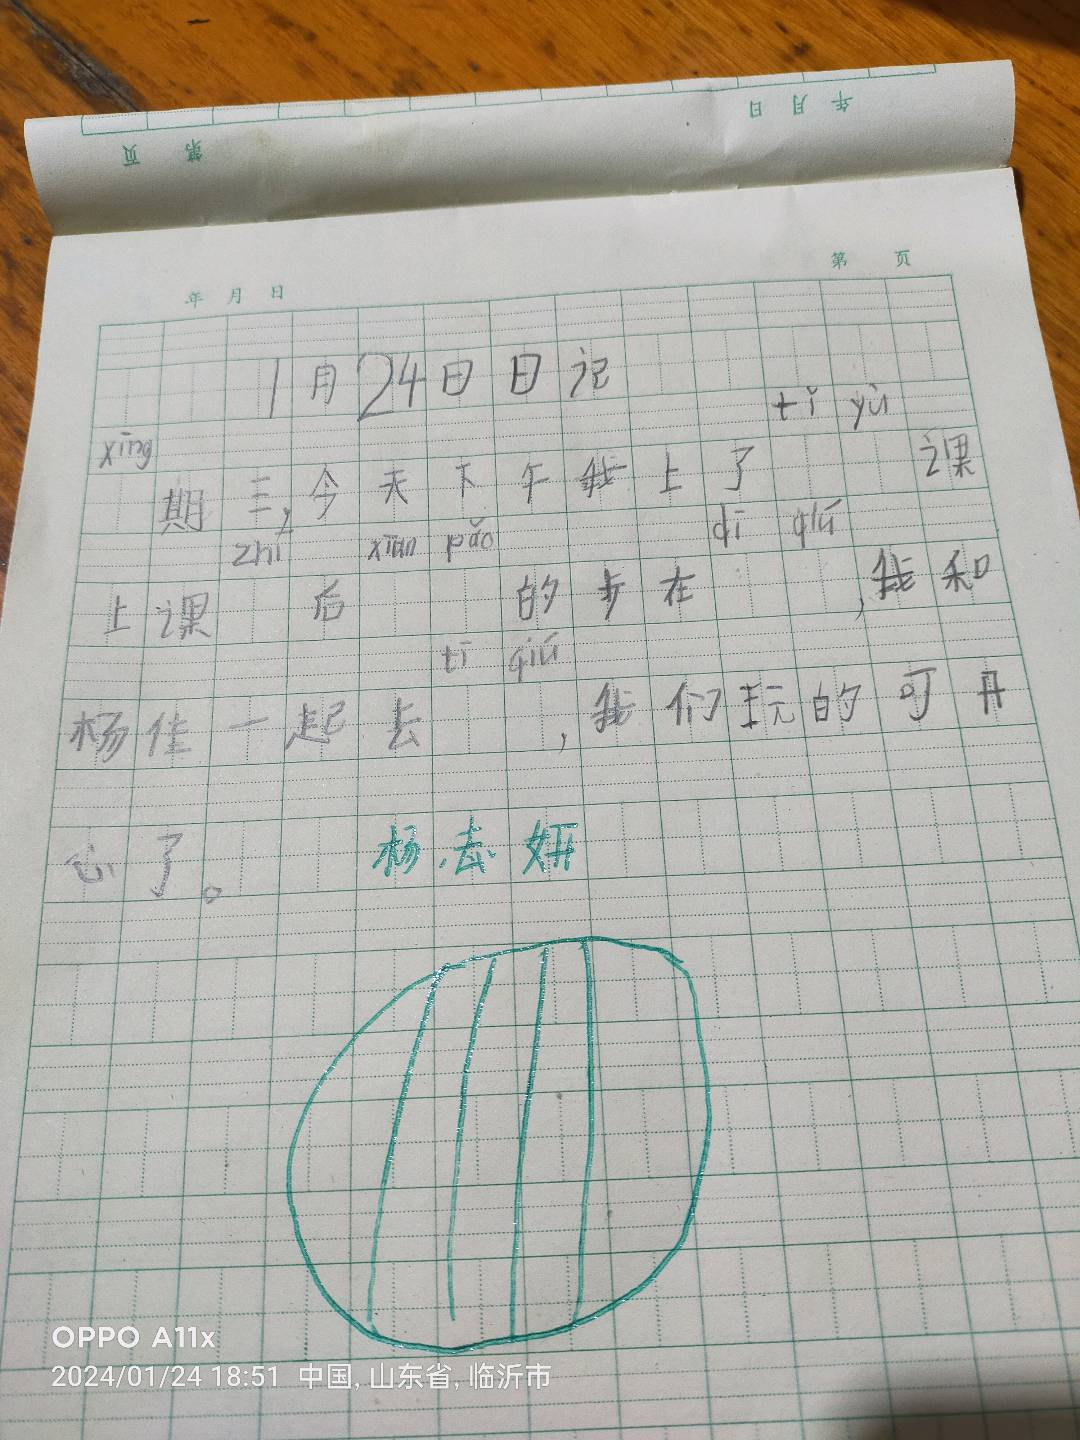 年 月 日
第 页
年 月 日
第 页
1月24日日记
tǐ yù
xīng
期三,今天下午我上了 课
zhī xiān pǎo dī qiú
上课 后 的步在 ,我和
tī qiú
杨佳一起去 ,我们玩的可开
心了。 杨志妍
OPPO A11x
2024/01/24 18:51 中国, 山东省, 临沂市